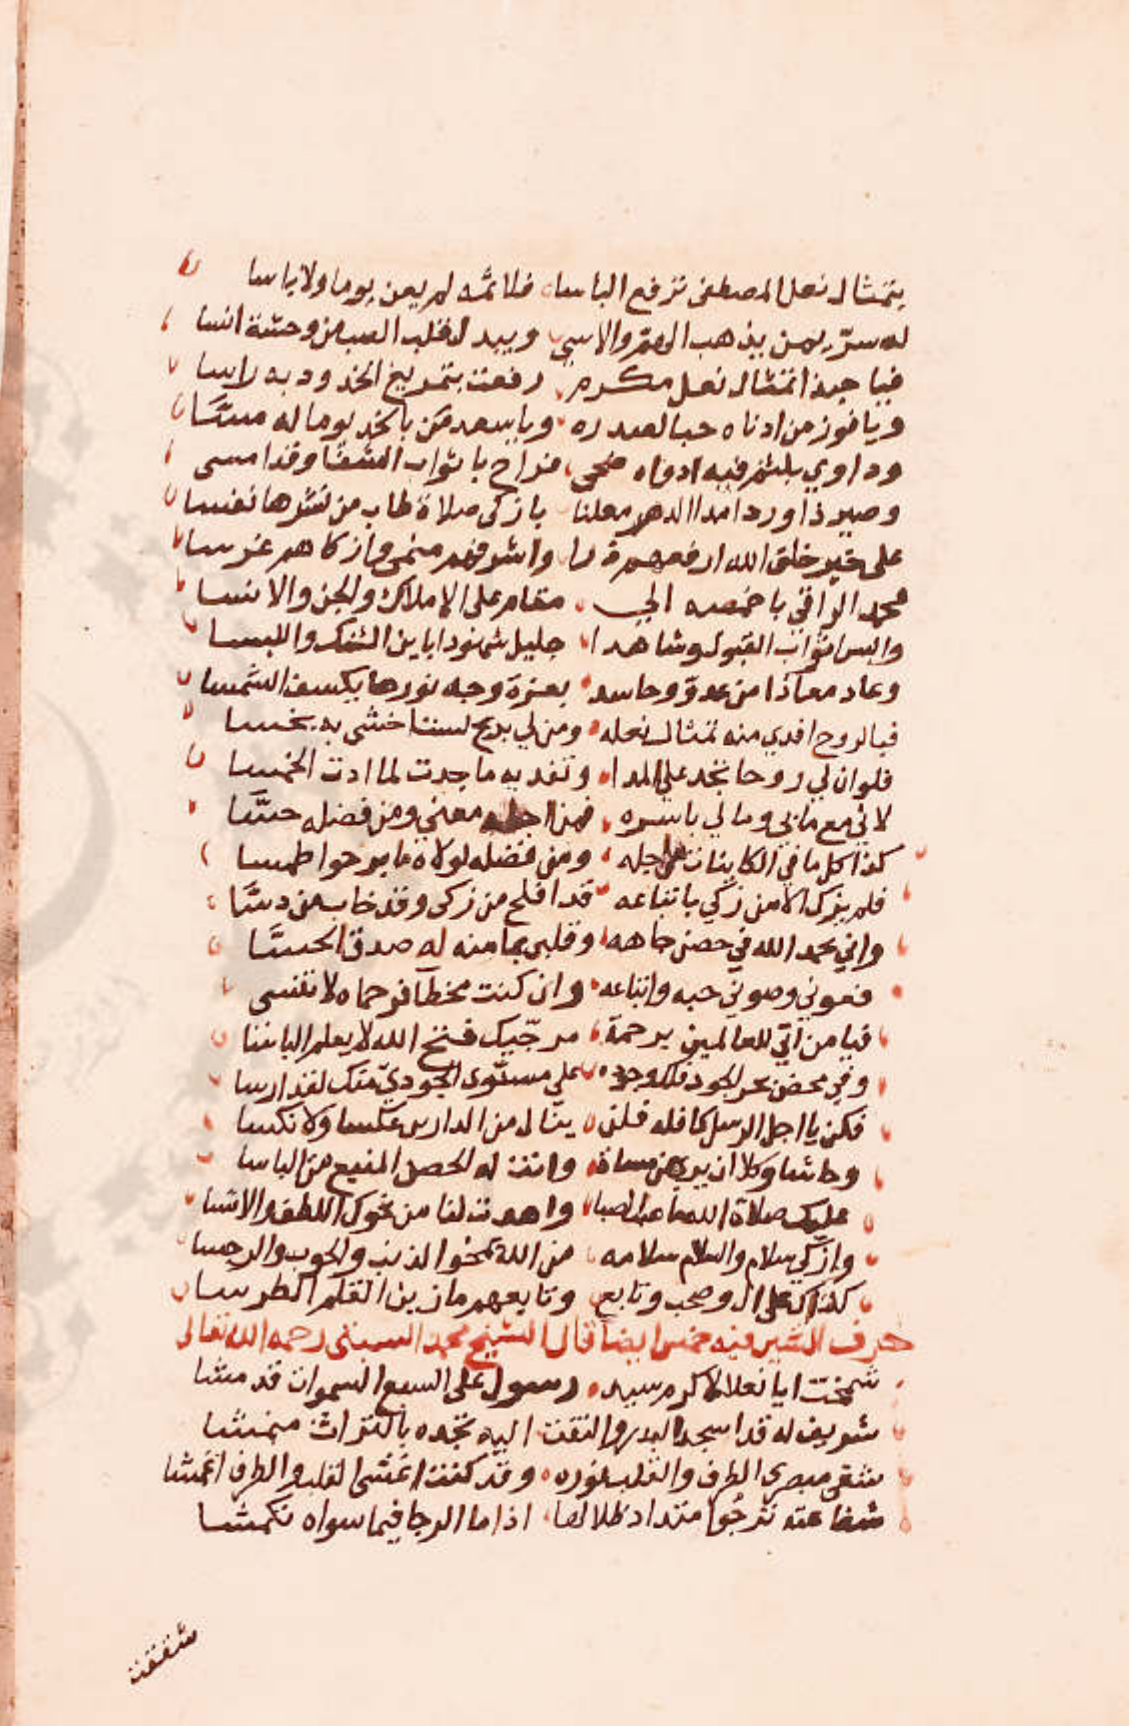 بتمثال نعل المصطفى ترفع الباسا فلاثمه لم يعن يوما ولا ياسا
له سرّ يمن يذهب الهم والاسى ويبدل لقلب الصب من وحشة انسا
فيا حبذا تمثال نعل مكرم رفعت بتمريغ الخدود به راسا
ويا فوز من ادناه حبا لصدره ويا سعد من بالخد يوما له مسَّا
وداوي بلثم فيه ادواه ضحى فراح باثواب الشفا وقد امسى
وصير ذا وردا مدا الدهر معلنا بازكى صلاة طاب من نشرها نفسا
على خير خلق الله ارفعهم واشرفهم منمى وازكاهم غرسا
محمد الراقي باخمصه الى مقام على الاملاك والجن والانسا
والبس اثواب القبول وشاهدا جليل شهود اباين الشك واللبسا
وعاد معاذا من عدوّ وحاسد بعزة وجه نورها يكسف الشمسا
فبالروح افدي منه تمثال نعله ومن لي بربح لست اخشى به بخسا
فلو ان لي روحا بخد على المدا وتفديه ما جدت لما ادت الخمسا
لاني مع مابي ومالي باسره فمن معنى ومن فضله حسَّا
كذا كل ما في الكاينات اجله ومن فضله لولاه ما برحوا طمسا
فلم يزك الا من زكي باتباعه قد افلح من زكى وقد خاب من دسَّا
واني بحمد الله في حصن جاهه وقلبي بما منه له صدق الحسَّا
فعوني وصوني حبه واتباعه وان كنت مخطآ فرحماه لا تنسى
فيا من اتى للعالمين برحمة مرجّيك فتح الله لا يعلم الياسا
وفي محض بحر الجود فلك وجوده على مستوى الجودي منك لقد ارسا
فكن يا اجل الرسل كافله فلن ينال من الدارين عكسا ولا نكسا
وحاشا وكلا ان يرى من مساة وانت له الحصن المنيع من الباسا
عليك صلاة الله ما هب الصبا واهدت لنا من نحوك اللطف والاشا
وازكي سلام والسلام سلامه من الله يمحو الذنب والحوب والرجسا
كذاك على ال وصحب وتابع وتابعهم ما زين القلم الطرسا
حرف الشين فيه خمس ايضا قال الشيخ محمد السبتي رحمه الله تعالى
شمخت ايا نعلا لاكرم سيد رسول على السبع السموات قد مشا
شريف له قد اسجد البدر والتقت اليه تجده بالتراث منمشا
شقى مبصري الطرف والقلب نوره وقد كنت اغشى القلب والطرف اعمشا
شفاعته نرجو امتداد ظلالها اذا ما الرجا فيما سواه تكمشا
شققت